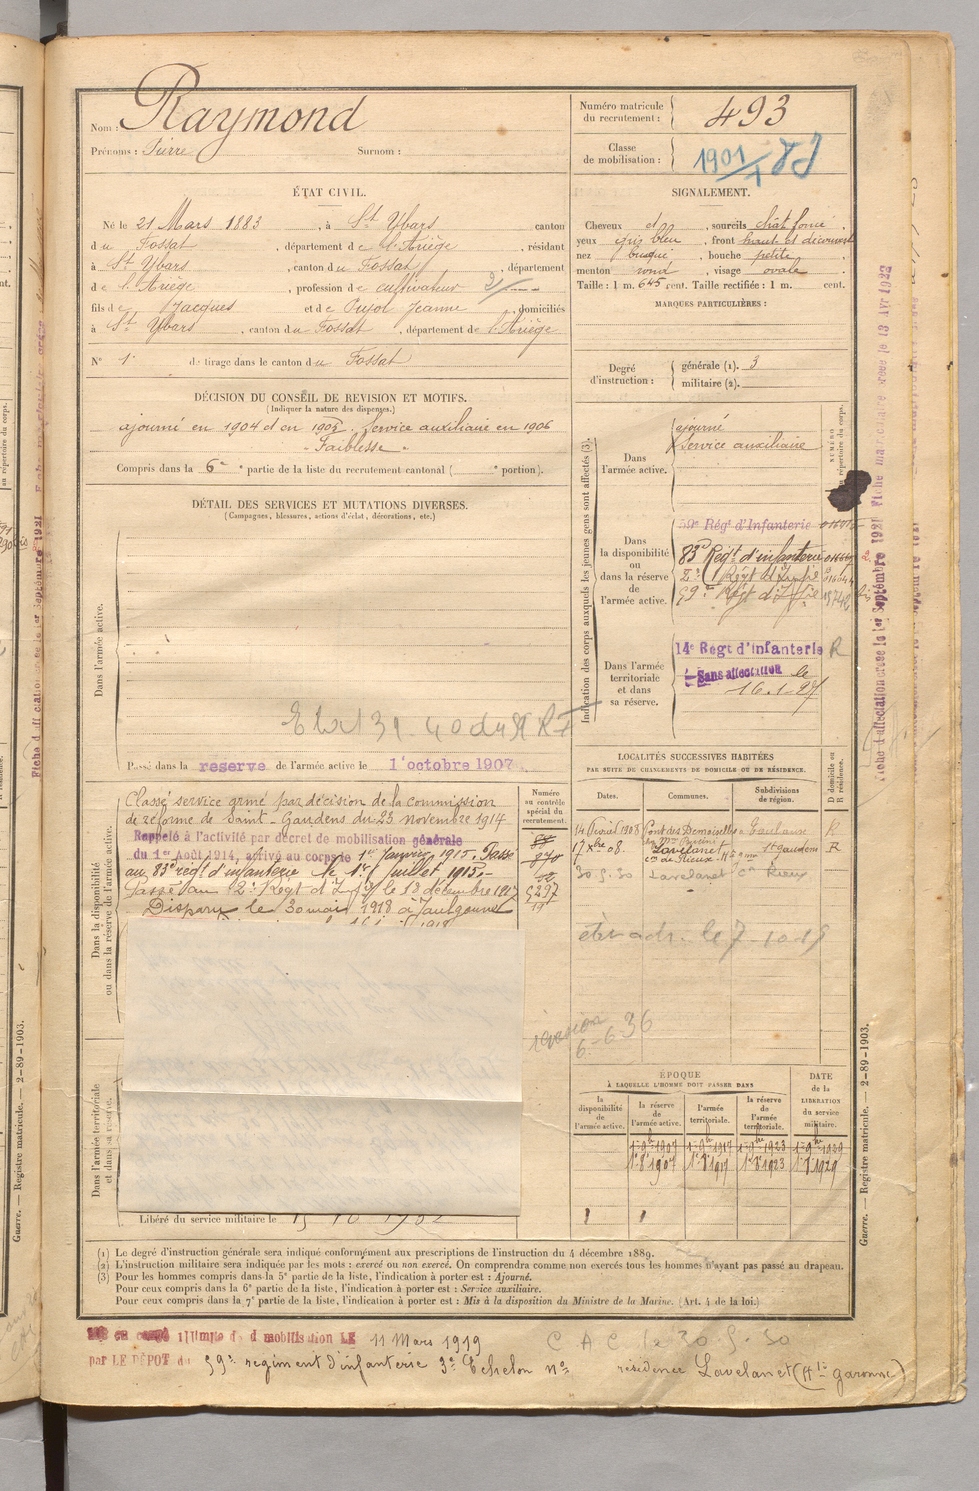 Nom : Raymond
Prénoms : Pierre Surnom :
Numéro matricule du recrutement : 493
Classe de mobilisation : 1901
ÉTAT CIVIL.
Né le 21 Mars 1883, à St Ybars canton
du Fossat, département de l'Ariège, résidant
à St Ybars, canton du Fossat, département
de l'Ariège, profession de cultivateur
fils de Jacques et de Pujol Jeanne domiciliés
à St Ybars, canton du Fossat, département de l'Ariège
N° 1 de tirage dans le canton du Fossat
SIGNALEMENT.
Cheveux d°, sourcils chât foncé,
yeux gris bleu, front haut et découvert
nez busqué, bouche petite,
menton rond, visage ovale
Taille : 1 m. 645 cent. Taille rectifiée : 1 m. cent.
MARQUES PARTICULIÈRES :
Degré d'instruction : générale (1). 3
militaire (2).
DÉCISION DU CONSEIL DE REVISION ET MOTIFS.
(Indiquer la nature des dispenses.)
ajourné en 1904 et en 1905. Service auxiliaire en 1906
- Faiblesse -
Compris dans la 6e partie de la liste du recrutement cantonal ( e portion).
DÉTAIL DES SERVICES ET MUTATIONS DIVERSES.
(Campagnes, blessures, actions d'éclat, décorations, etc.)
Dans l'armée active.
Passé dans la réserve de l'armée active le 1 octobre 1907
Indication des corps auxquels les jeunes gens sont affectés (3).
NUMÉRO au répertoire du corps.
Dans l'armée active.
ajourné
Service auxiliaire
Dans la disponibilité ou dans la réserve de l'armée active.
59e Régt d'Infanterie
83e Régt d'infanterie
2e Régt
59e Régt d'Infie
Dans l'armée territoriale et dans sa réserve.
14e Régt d'infanterie R
Sans affectation le
16.1-27
Dans la disponibilité ou dans la réserve de l'armée active.
Numéro au contrôle spécial du recrutement.
Classé service armé par décision de la commission
de réforme de Saint-Gaudens du 23 novembre 1914
Rappelé à l'activité par décret de mobilisation générale
du 1er Août 1914, arrivé au corps le 1er Janvier 1915. Passé
au 83e régt d'infanterie le 1er juillet 1915.-
Passé au 2e Régt d'Infie le 13 décembre 1917
Disparu le 30 mai 1918 à Jaulgonne
870
5237
LOCALITÉS SUCCESSIVES HABITÉES
PAR SUITE DE CHANGEMENTS DE DOMICILE OU DE RÉSIDENCE.
Dates. Communes. Subdivisions de région. D domicile ou R résidence.
14 février 1908 Pont des Demoiselles Toulouse R
17 xbre 08. Lavelanet con de Rieux St gaudens R
30.5.30 Lavelanet con Rieux
le 7-10-19
révision
6-6-36
ÉPOQUE
À LAQUELLE L'HOMME DOIT PASSER DANS
la disponibilité de l'armée active.
la réserve de l'armée active.
l'armée territoriale.
la réserve de l'armée territoriale.
DATE de la LIBÉRATION du service militaire.
1er 8bre 1907 1er 8bre 1917 1er 8bre 1923 1er 8bre 1929
Dans l'armée territoriale et dans sa réserve.
Libéré du service militaire le 15 10 1932
(1) Le degré d'instruction générale sera indiqué conformément aux prescriptions de l'instruction du 4 décembre 1889.
(2) L'instruction militaire sera indiquée par les mots : exercé ou non exercé. On comprendra comme non exercés tous les hommes n'ayant pas passé au drapeau.
(3) Pour les hommes compris dans la 5e partie de la liste, l'indication à porter est : Ajourné.
Pour ceux compris dans la 6e partie de la liste, l'indication à porter est : Service auxiliaire.
Pour ceux compris dans la 7e partie de la liste, l'indication à porter est : Mis à la disposition du Ministre de la Marine. (Art. 4 de la loi.)
en congé illimité de démobilisation LE 11 Mars 1919
C A C le 30-5-30
par LE DÉPOT du 59e régiment d'infanterie 3e Echelon no résidence Lavelanet (Hte garonne)
Guerre. — Registre matricule. — 2-89-1903.
Guerre. — Registre matricule. — 2-89-1903.
Fiche d'affectation créée le 1er Septembre 1921